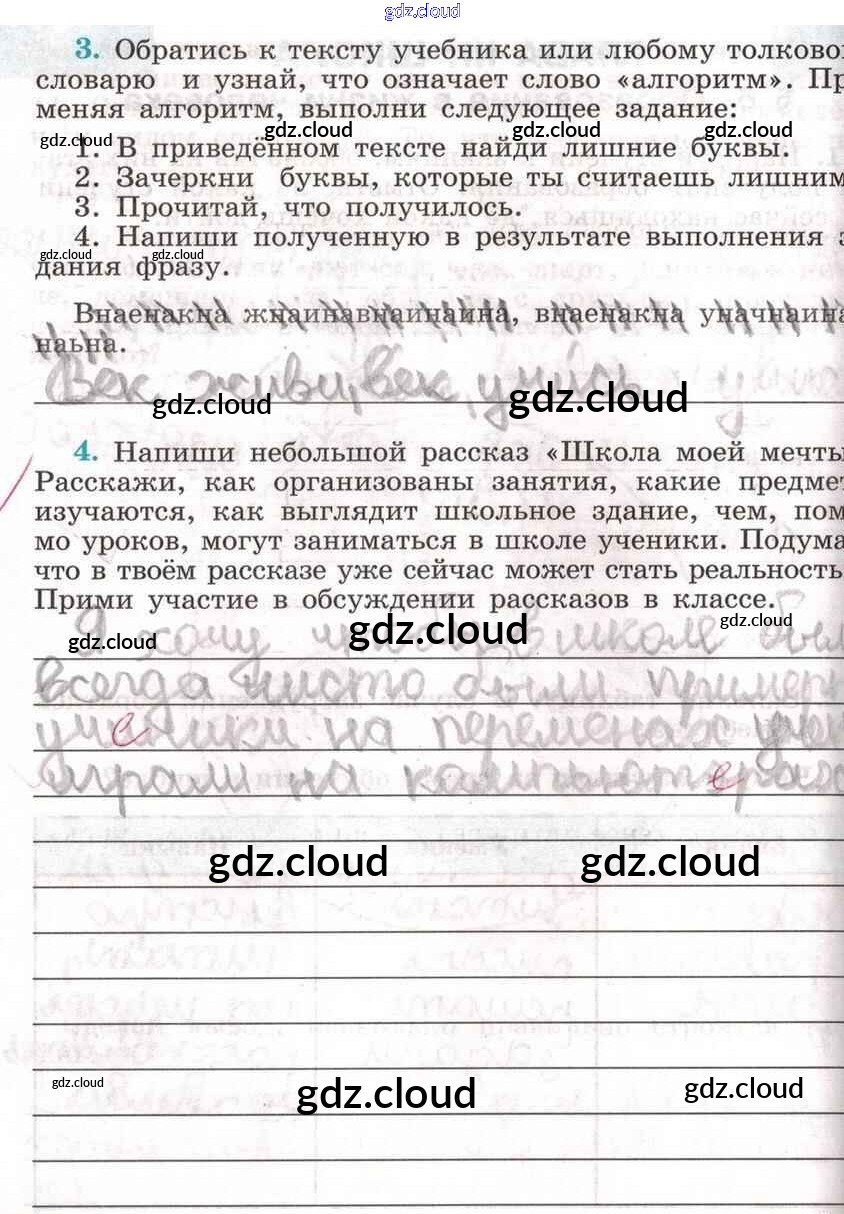 gdz.cloud
3. Обратись к тексту учебника или любому толково
словарю и узнай, что означает слово «алгоритм». Пр
меняя алгоритм, выполни следующее задание:
gdz.cloud gdz.cloud gdz.cloud gdz.cloud
1. В приведённом тексте найди лишние буквы.
2. Зачеркни буквы, которые ты считаешь лишним
3. Прочитай, что получилось.
4. Напиши полученную в результате выполнения з
gdz.cloud gdz.cloud
дания фразу.
Внаенакна жнаинавнаинаина, внаенакна уначнаина
наьна.
Век живи, век учись
gdz.cloud gdz.cloud
4. Напиши небольшой рассказ «Школа моей мечты
Расскажи, как организованы занятия, какие предмет
изучаются, как выглядит школьное здание, чем, пом
мо уроков, могут заниматься в школе ученики. Подума
что в твоём рассказе уже сейчас может стать реальность
Прими участие в обсуждении рассказов в классе.
gdz.cloud gdz.cloud gdz.cloud
Я хочу школе
всегда чисто были пример
ученики на переменах
играли на компьютерах
gdz.cloud gdz.cloud
gdz.cloud gdz.cloud gdz.cloud